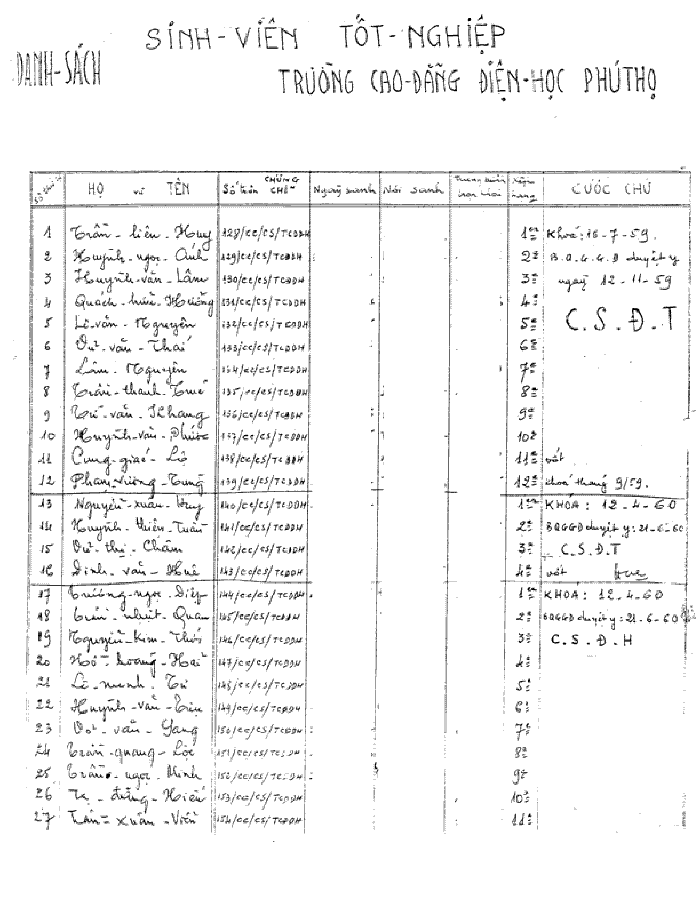 SINH-VIÊN TỐT-NGHIỆP
DANH-SÁCH
TRƯỜNG CAO-ĐẲNG ĐIỆN-HỌC PHÚTHỌ
HỌ và TÊN Số trên CHỨNG CHỈ Ngày sanh Nơi sanh CƯỚC CHÚ
1 Trần-liên-Huy 128/CC/CS/TCDDH 1er Khoá: 16-7-59.
2 Huỳnh-ngọc-Ánh 129/CC/CS/TCDDH 2e B.Q.G.G.D duyệt y
3 Huỳnh-văn-Lâm 130/CC/CS/TCDDH 3e ngày 12-11-59
4 Quách-hữu-Hưỡng 131/CC/CS/TCDDH 4e
5 Lê-văn-Nguyên 132/CC/CS/TCDDH 5e C.S.Đ.T
6 văn-Thái 133/CC/CS/TCDDH 6e
7 Lâm-Nguyên 134/CC/CS/TCDDH 7e
8 thanh 135/CC/CS/TCDDH 8e
9 văn-Khang 136/CC/CS/TCDDH 9e
10 Huỳnh-văn-Phước 137/CC/CS/TCDDH 10e
11 Cung-giác-Lộ 138/CC/CS/TCDDH 11e vớt
12 Phạm-vương-Tung 139/CC/CS/TCDDH 12e khoá tháng 9/59.
13 Nguyễn-xuân-Huy 140/CC/CS/TCDDH 1er KHÓA: 12-4-60
14 Huỳnh-thiên-Tuấn 141/CC/CS/TCDDH 2e BQGGD duyệt y: 21-6-60
15 thị-Chấm 142/CC/CS/TCDDH 3e C.S.Đ.T
16 Đinh-văn-Huê 143/CC/CS/TCDDH 4e vớt
17 Trương-ngọc-Diệp 144/CC/CS/TCDDH 1er KHÓA: 12.4-60
18 Trần-nhựt-Quan 145/CC/CS/TCDDH 2e BQGGD duyệt y: 21-6-60
19 Nguyễn-Kim 146/CC/CS/TCDDH 3e C.S.Đ.H
20 Hồ-hoàng-Hải 147/CC/CS/TCDDH 4e
21 Lê-minh-Tú 148/CC/CS/TCDDH 5e
22 Huỳnh-văn 149/CC/CS/TCDDH 6e
23 văn-Yang 150/CC/CS/TCDDH 7e
24 Trần-quang-Lộc 151/CC/CS/TCDDH 8e
25 Trần-ngọc-Minh 152/CC/CS/TCDDH 9e
26 Tạ-đăng-Hiếu 153/CC/CS/TCDDH 10e
27 xuân-Viên 154/CC/CS/TCDDH 11e